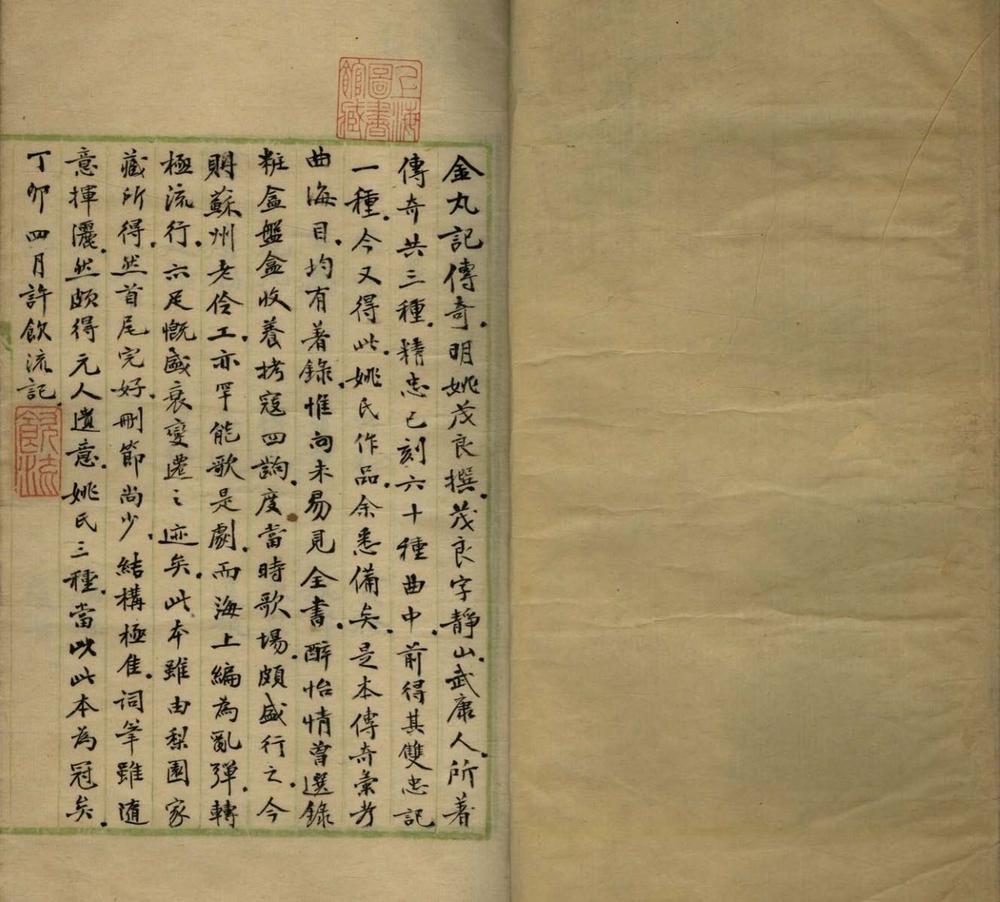 上海圖書館藏
金丸記傳奇.明姚茂良撰.茂良字靜山.武康人.所著
傳奇共三種.精忠已刻六十種曲中.前得其雙忠記
一種.今又得此.姚氏作品.余悉備矣.是本傳奇彙考
曲海目.均有著錄.惟向未易見全書.醉怡情曾選錄
粧盒盤盒收養拷寇四齣.度當時歌場.頗盛行之.今
則蘇州老伶工.亦罕能歌是劇.而海上編為亂彈.轉
極流行.亦足慨盛衰變遷之迹矣.此本雖由梨園家
藏所得.然首尾完好.刪節尚少.結構極佳.詞筆雖隨
意揮灑.然頗得元人遺意.姚氏三種.當以此本為冠矣.
丁卯四月許飲流記.
飲流